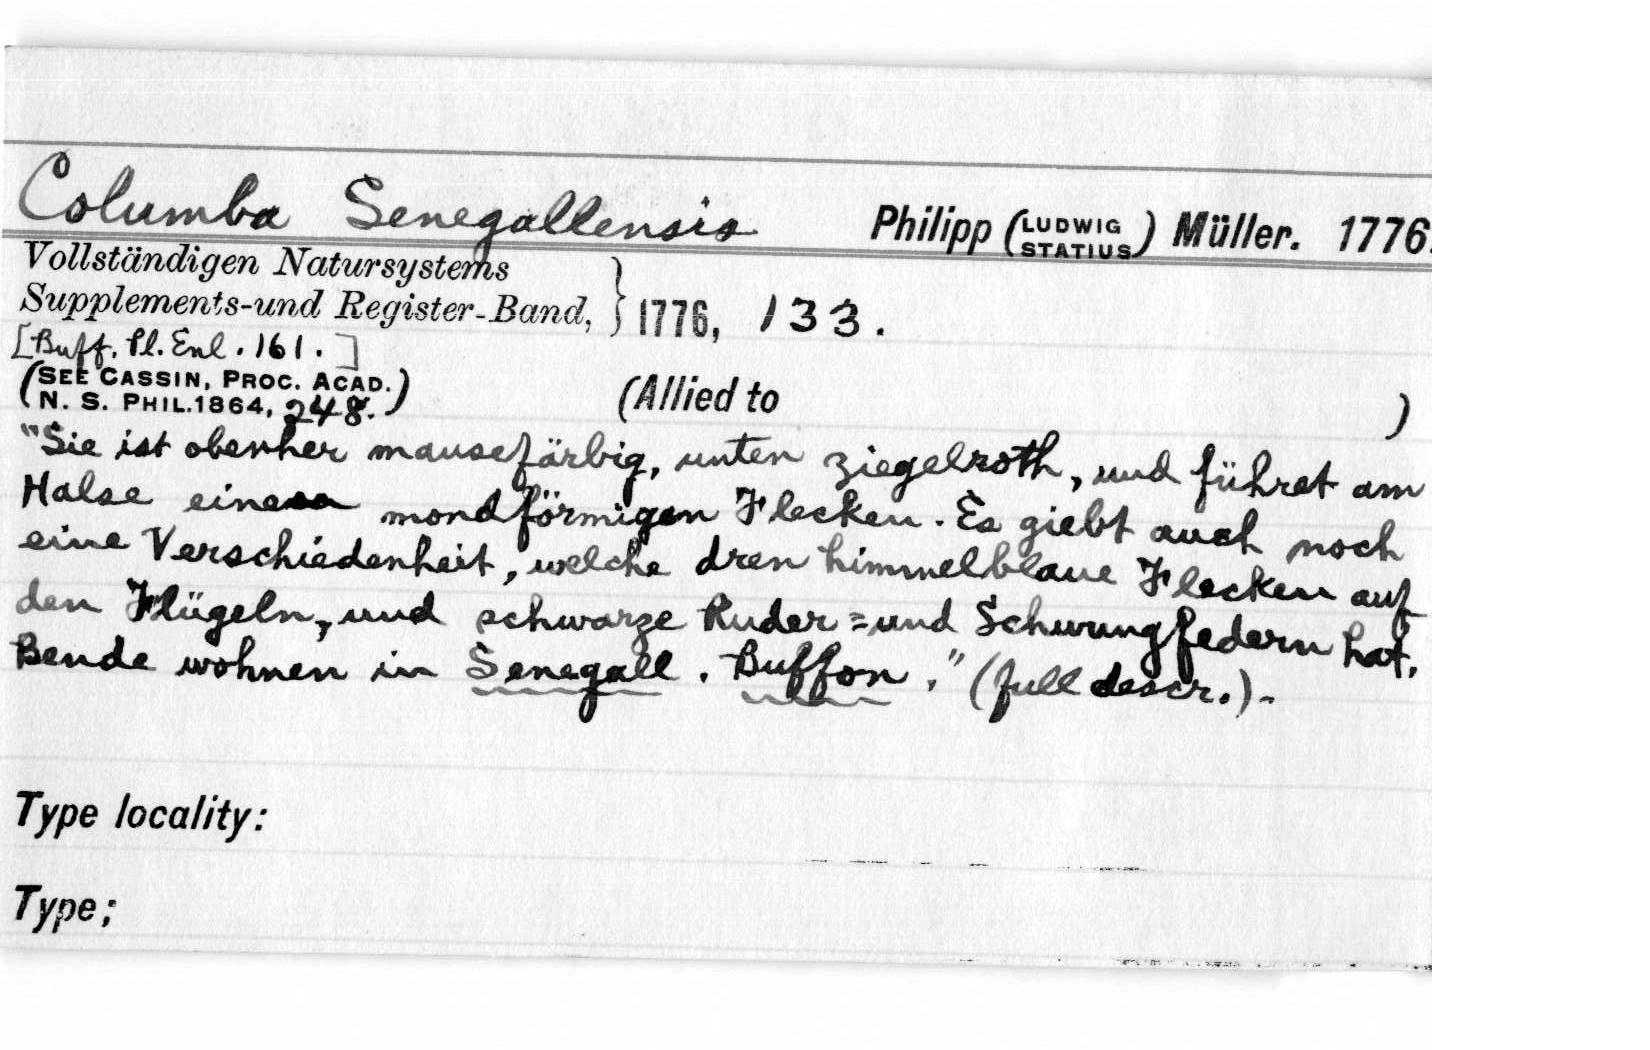 Columba Senegallensis Philipp (LUDWIG STATIUS) Müller. 1776.
Vollständigen Natursystems
Supplements-und Register-Band, } 1776, 133.
[Buff. Pl. Enl. 161.]
(SEE CASSIN, PROC. ACAD.
N. S. PHIL. 1864, 248.) (Allied to )
"Sie ist obenher mausefärbig, unten ziegelroth, und führet am
Halse einen mondförmigen Flecken. Es giebt auch noch
eine Verschiedenheit, welche dren himmelblaue Flecken auf
den Flügeln, und schwarze Ruder=und Schwungfedern hat.
Bende wohnen in Senegall. Buffon." (full descr.)-
Type locality:
Type;